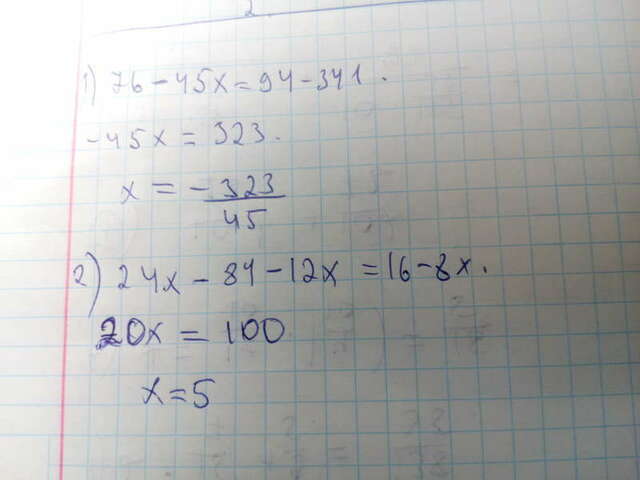 1) 76 - 45x = 94 - 341.
-45x = 323.
x = - 323/45
2) 24x - 84 - 12x = 16 - 8x.
20x = 100
x = 5